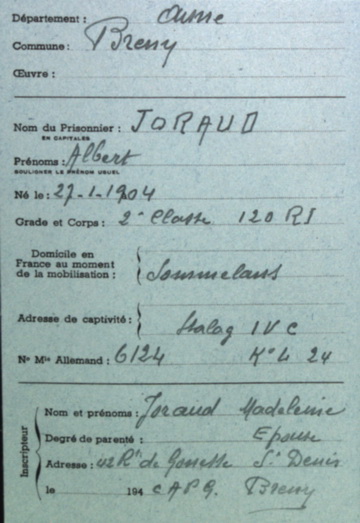 Département : Aisne
Commune : Breny
Œuvre :
Nom du Prisonnier : JORAUD
EN CAPITALES
Prénoms : Albert
SOULIGNER LE PRÉNOM USUEL
Né le : 27-1-1904
Grade et Corps : 2e Classe 120 RI
Domicile en
France au moment
de la mobilisation : Sommelans
Adresse de captivité : Stalag IV C
No Mle Allemand : 6124 Ko L 24
Inscripteur
Nom et prénoms : Joraud Madeleine
Degré de parenté : Epouse
Adresse : 42 Rte de Gonesse St Denis
le 194 C.A.P.G. Breny